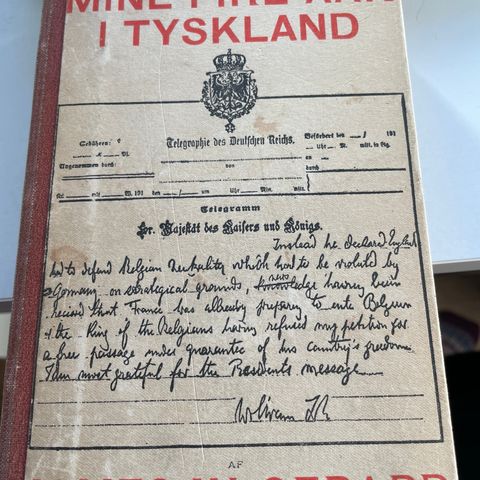 MINE FIRE AAR
I TYSKLAND
Telegraphie des Deutschen Reichs.
Telegramm
Sr. Majestät des Kaisers und Königs.
Instead he declared England
had to defend Belgian neutrality which had to be violated by
Germany on strategical grounds, news having been
received that France was already preparing to enter Belgium
& the King of the Belgians having refused my petition for
a free passage under guarantee of his country's freedom.
I am most grateful for the Presidents message
AF
JAMES W. GERARD